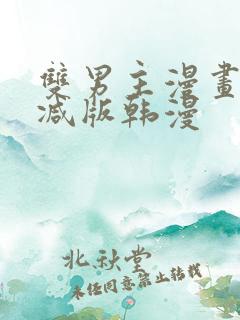 雙男主漫畫
减版韩漫
北秋堂
未经同意禁止转载